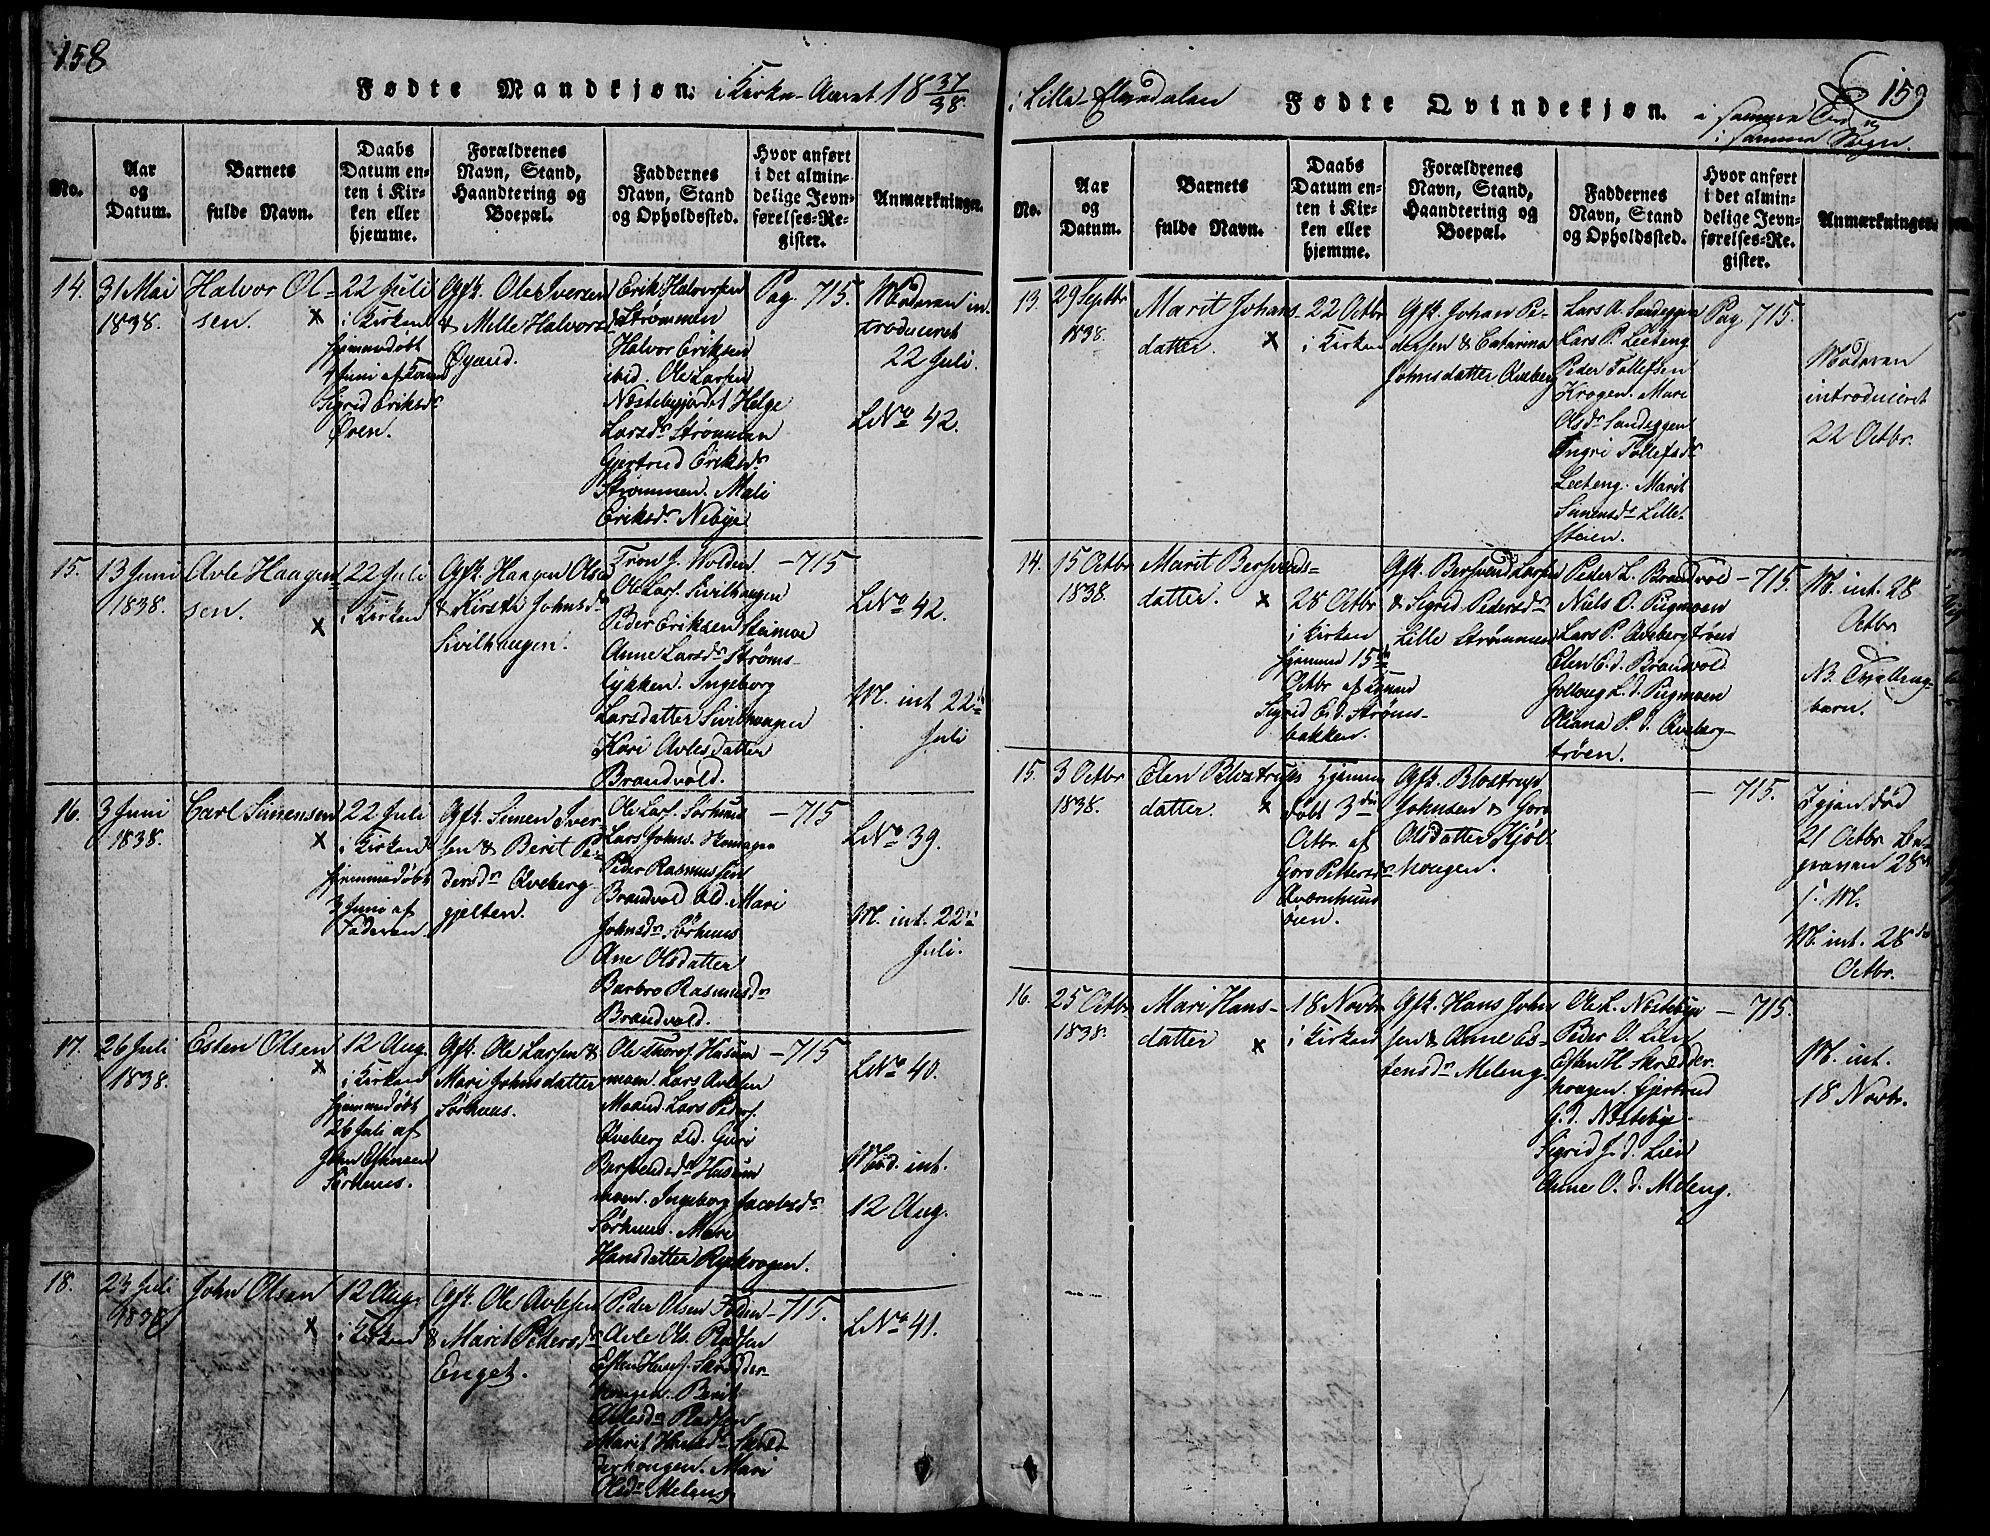 158
Fødte Mandkjøn. i Kirke-Aaret 18 37/38
No.
Aar og Datum.
Barnets fulde Navn.
Daabs Datum enten i Kirken eller hjemme.
Forældrenes Navn, Stand, Haandtering og Boepæl.
Faddernes Navn, Stand og Opholdssted.
Hvor anført i det almindelige Jevnførelses-Register.
Anmærkninger.
14.
31 Mai
1838.
Halvor Ol-
sen. x
22 Juli
i Kirken
hjemmedøbt
Juni af
Sigrid Eriksdr
Øren.
Gft. Ole Iversen
& Mille Halvorsd
Øyand.
Erik Halvorsen
Strømmen
Halvor Eriksen
ibid. Ole Larsen
Nestebyjordet Helge
Larsdr Strømmen
Gjertrud Eriksdr
Strømmen. Mali
Eriksdr Nebye
Pag. 715.
Moderen in-
troduceret
22 Juli.
LNo 42.
15.
13 Juni
1838.
Avle Haagen
sen. x
22 Juli
i Kirken
Gft. Haagen Olsen
& Kirsti Johnsdr
Sivilhaugen.
Tron J. Wolden
Ole Lars. Sivilhaugen
Peder Eriksen Steimoe
Anne Larsdr Strøms-
løkken. Ingeborg
Larsdatter Sivilhaugen
Kari Avlesdatter
Brandvold.
- 715
LNo 42.
M. int. 22
Juli
16.
3 Juni
1838.
Carl Simensen
x
22 Juli
i Kirken
hjemmedøbt
3 Juni af
Faderen.
Gft. Simen Iver-
sen & Berit Pe-
dersdr Qveberg
gjelten.
Ole Lars. Sørhuus
Lars Johns.
Peder Rasmussen
Brandvold Mari
Johnsdr Sørhuus
Ane Olsdatter
Barbro Rasmusdr
Brandvold.
- 715
LNo 39.
M. int. 22
Juli.
17.
26 Juli
1838.
Esten Olsen
x
12 Aug.
i Kirken
hjemmedøbt
26 Juli af
John Estensen
Sørhuus.
Gft. Ole Larsen &
Mari Johnsdatter
Sørhuus.
Ole Thores. Husum
moen. Lars Avlesen
Moand. Lars Peders.
Qveberg Guri
Bersvendsdr Husum
moen. Ingeborg Jacobsdr
Sørhuus. Mari
Hansdatter Ryskrogen.
- 715
LNo 40.
Mod. int.
12 Aug.
18.
23 Juli
1838
John Olsen
x
12 Aug.
i Kirken
Gft. Ole Avlesen
& Marit Pedersdr
Enget.
Peder Olsen
Avle Ols. Rødsen
Esten Hans. Skrædder-
haugen. Berit
Avlesdr Rødsen
Marit Hansdr Skræd-
derhaugen. Mari
Olsdr Meleng
- 715.
LNo 41.
159
i Lille-Elvedalen
Fødte Qvindekjøn.
i samme Aar
i samme Sogn.
No.
Aar og Datum.
Barnets fulde Navn.
Daabs Datum enten i Kirken eller hjemme.
Forældrenes Navn, Stand, Haandtering og Boepæl.
Faddernes Navn, Stand og Opholdssted.
Hvor anført i det almindelige Jevnførelses-Register.
Anmærkninger.
13.
29 Septbr
1838.
Marit Johans
datter. x
22 Octbr
i Kirken
Gft. Johan Pe-
dersen & Catarina
Johnsdatter Qveberg
Lars A. Sandeggen
Lars P. Leeteng
Peder Tollefsen
Krogen. Mari
Olsdr Sandeggen
Ingri Tollefsdr
Leeteng. Marit
Simensdr Lille-
støien.
Pag. 715.
Moderen
introduceret
22 Octbr.
14.
15 Octbr
1838.
Marit Bersvends-
datter. x
28 Octbr
i Kirken
hjemmed 15de
Octbr af
Sigrid E. d. Strøms-
bakken.
Gft. Bersvend Larsen
& Sigrid Pedersdr
Lille Strømmen
Peder L. Brandvold
Niels O. Pugmoen
Lars P. Qvebergtrøen
Elen E. d. Brandvold
Jollaug L. d. Pugmoen
Oliana P. d. Qveberg-
trøen.
- 715.
M. int. 28
Octbr
NB. Tvilling-
barn.
15.
3 Octbr
1838.
Elen Blostrups
datter. x
Hjemme
døbt 3die
Octbr. af
Goro Pettersdr
Qværnhuus
øien.
Gft. Blostrup
Johnsen & Goro
Olsdatter Kjøl-
haugen.
- 715.
Igjen død
21 Octbr be-
graven 28de
s. M.
M. int. 28de
Octbr.
16.
25 Octbr
1838.
Mari Hans-
datter x
18 Novbr
i Kirken
Gft. Hans John
sen & Anne Es-
tensdr Meleng.
Ole L. Nestebye
Peder O. Lien
Esten H. Skrædder-
haugen. Gjertrud
G. d. Nestebye.
Sigrid J. d. Lien
Anne O. d. Meleng.
- 715.
M. int.
18 Novbr.